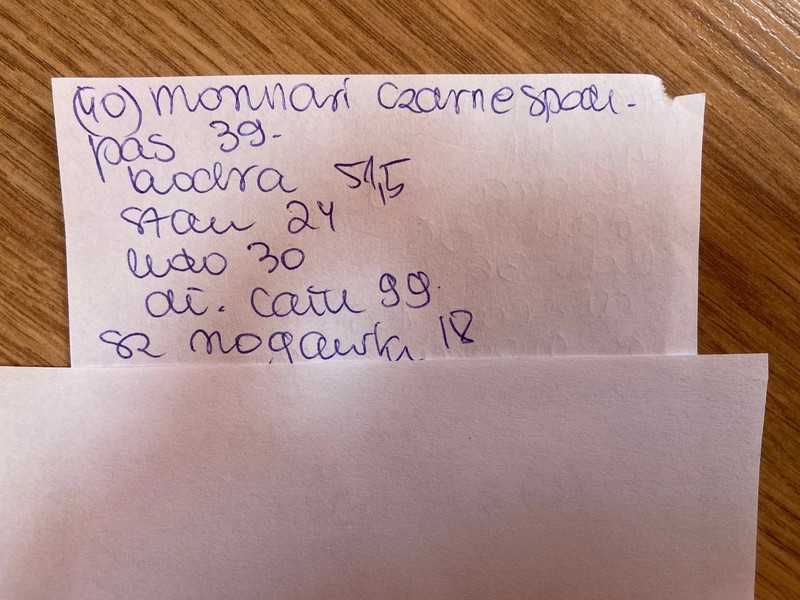 (40) monnari czarne spodn.
pas 39.
biodra 51,5
stan 24
udo 30
dł. całk 99.
sz nogawki 18